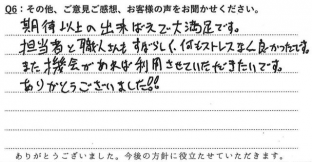 Q6：その他、ご意見ご感想、お客様の声をお聞かせください。
期待以上の出来ばえで大満足です。
担当者と職人さんもすばらしく、何もストレスなく良かったです。
また機会があれば利用させていただきたいです。
ありがとうございました!!
ありがとうございました。今後の方針に役立たせていただきます。